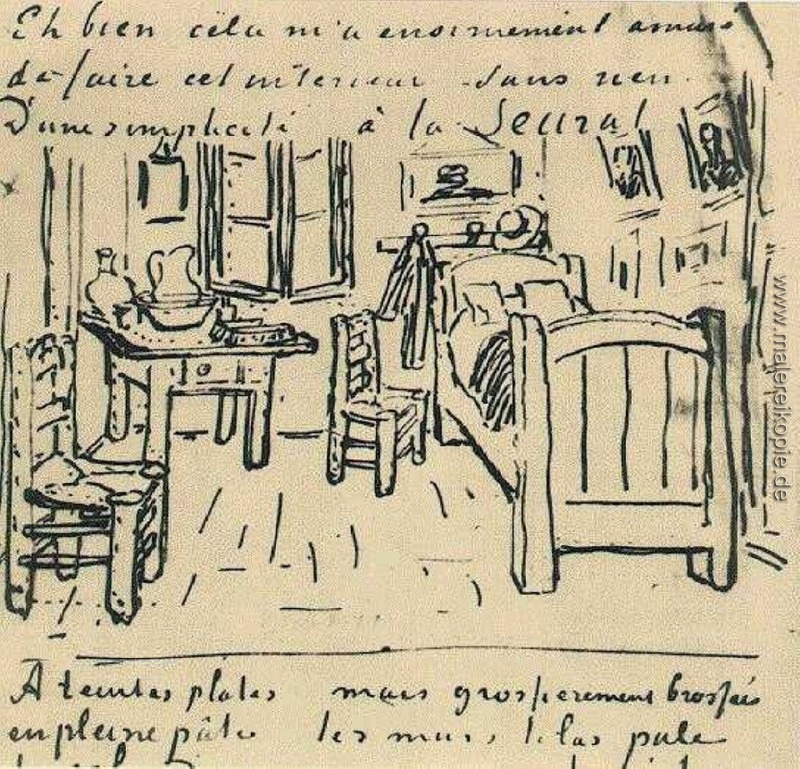 Eh bien cela m'a enormement amusé
de faire cet interieur sans rien.
D'une simplicité à la Seurat
A teintes plates mais grossierement brossées
en pleine pâte les murs lilas pale
www.malereikopie.de